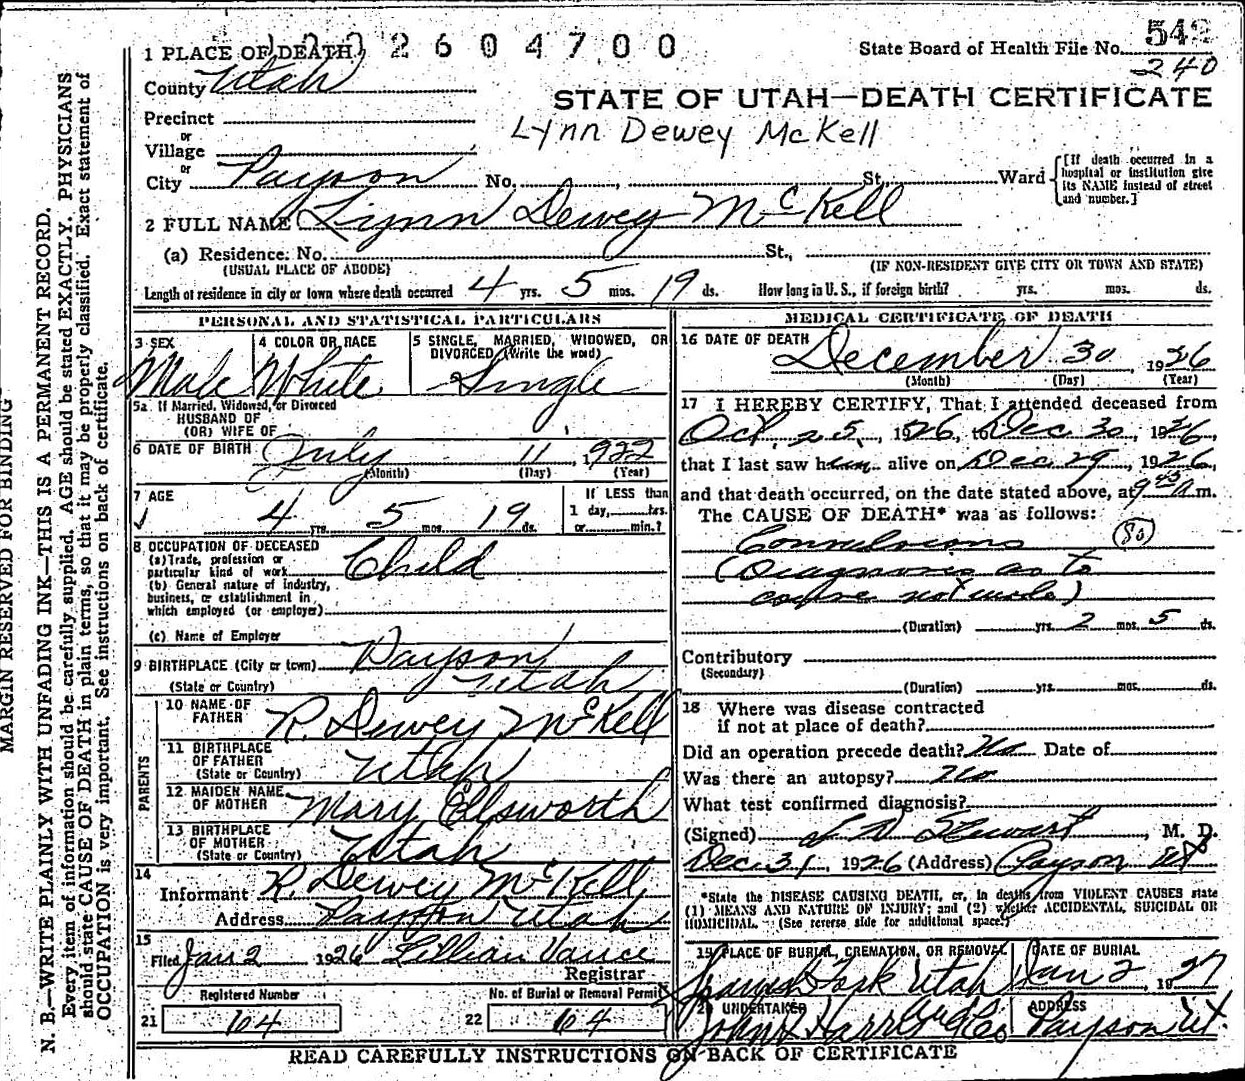 2604700
State Board of Health File No. 542
240
1 PLACE OF DEATH
County Utah
STATE OF UTAH—DEATH CERTIFICATE
Precinct
Lynn Dewey McKell
or
Village
or
City Payson No. , St. Ward
[If death occurred in a hospital or institution give its NAME instead of street and number.]
2 FULL NAME Lynn Dewey McKell
(a) Residence: No. St.,
(USUAL PLACE OF ABODE) (IF NON-RESIDENT GIVE CITY OR TOWN AND STATE)
Length of residence in city or town where death occurred 4 yrs. 5 mos. 19 ds. How long in U. S., if foreign birth? yrs. mos. ds.
PERSONAL AND STATISTICAL PARTICULARS
3 SEX
Male
4 COLOR OR RACE
White
5 SINGLE, MARRIED, WIDOWED, OR
DIVORCED (Write the word)
Single
5a If Married, Widowed, or Divorced
HUSBAND OF
(OR) WIFE OF
6 DATE OF BIRTH July 11, 1922
(Month) (Day) (Year)
7 AGE
4 yrs. 5 mos. 19 ds.
If LESS than
1 day, hrs.
or min.?
8 OCCUPATION OF DECEASED
(a) Trade, profession or
particular kind of work Child
(b) General nature of industry,
business, or establishment in
which employed (or employer)
(c) Name of Employer
9 BIRTHPLACE (City or town) Payson
(State or Country) Utah
PARENTS
10 NAME OF
FATHER R. Dewey McKell
11 BIRTHPLACE
OF FATHER
(State or Country) Utah
12 MAIDEN NAME
OF MOTHER Mary Ellsworth
13 BIRTHPLACE
OF MOTHER
(State or Country) Utah
14
Informant R. Dewey McKell
Address Payson Utah
15
Filed Jan 2 1926 Lillian Vance
Registrar
Registered Number
21 104
No. of Burial or Removal Permit
22 104
MEDICAL CERTIFICATE OF DEATH
16 DATE OF DEATH
December 30, 1926
(Month) (Day) (Year)
17 I HEREBY CERTIFY, That I attended deceased from
Oct. 25, 1926, to Dec 30, 1926
that I last saw him alive on Dec 29, 1926,
and that death occurred, on the date stated above, at 9 45 a m.
The CAUSE OF DEATH* was as follows:
Convulsions (80)
(Diagnosis as to
cause not made)
(Duration) yrs. 2 mos. 5 ds.
Contributory
(Secondary)
(Duration) yrs. mos. ds.
18 Where was disease contracted
if not at place of death?
Did an operation precede death? No Date of
Was there an autopsy? No
What test confirmed diagnosis?
(Signed) Stewart, M. D.
Dec 31, 1926 (Address) Payson Ut
*State the DISEASE CAUSING DEATH, or, in deaths from VIOLENT CAUSES state
(1) MEANS AND NATURE OF INJURY; and (2) whether ACCIDENTAL, SUICIDAL OR
HOMICIDAL. (See reverse side for additional space.)
19 PLACE OF BURIAL, CREMATION, OR REMOVAL
Spanish Fork Utah
DATE OF BURIAL
Jan 2, 1927
20 UNDERTAKER
ADDRESS
Payson Ut.
READ CAREFULLY INSTRUCTIONS ON BACK OF CERTIFICATE
MARGIN RESERVED FOR BINDING
N. B.—WRITE PLAINLY WITH UNFADING INK—THIS IS A PERMANENT RECORD.
Every item of information should be carefully supplied. AGE should be stated EXACTLY. PHYSICIANS
should state CAUSE OF DEATH in plain terms, so that it may be properly classified. Exact statement of
OCCUPATION is very important. See instructions on back of certificate.